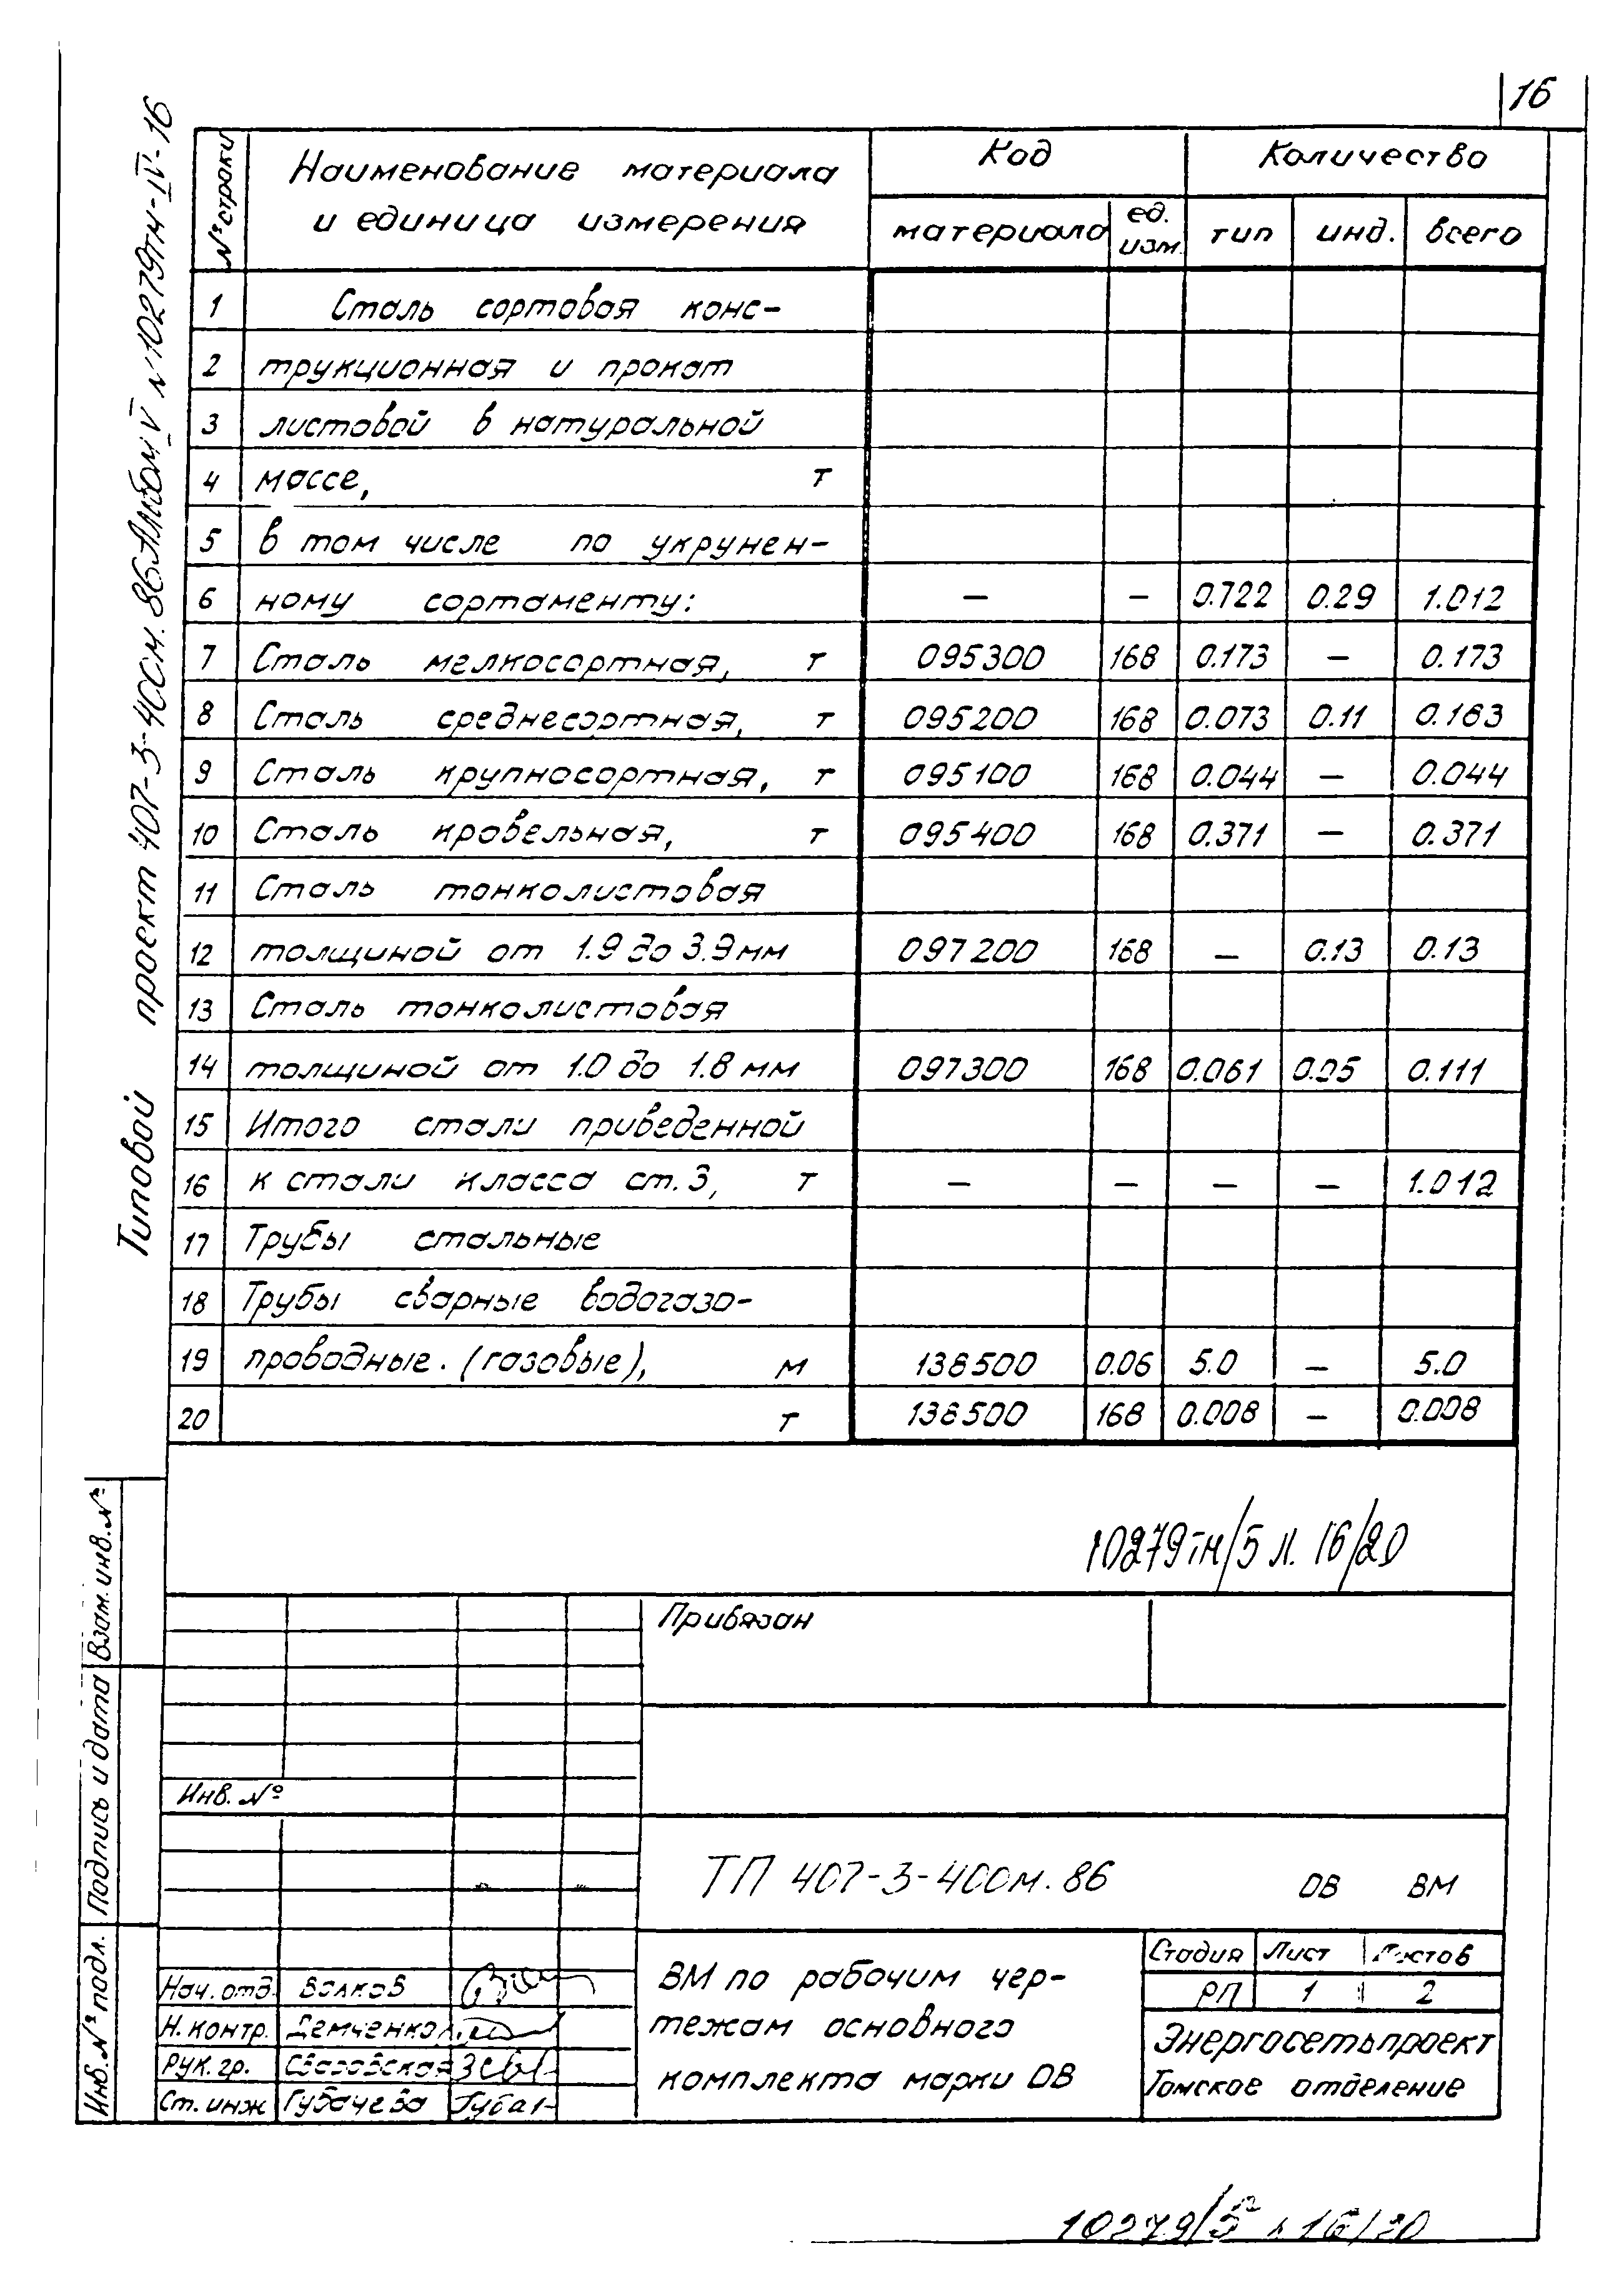 16
Типовой проект 407-3-400м.86 Альбом V № 10279тм-IV-16
№ строки | Наименование материала и единица измерения | Код | Количество
материала | ед. изм. | тип | инд. | всего
1 Сталь сортовая конс-
2 трукционная и прокат
3 листовой в натуральной
4 массе, т
5 в том числе по укрунен-
6 ному сортаменту: — — 0.722 0.29 1.012
7 Сталь мелкосортная, т 095300 168 0.173 — 0.173
8 Сталь среднесортная, т 095200 168 0.073 0.11 0.183
9 Сталь крупносортная, т 095100 168 0.044 — 0.044
10 Сталь кровельная, т 095400 168 0.371 — 0.371
11 Сталь тонколистовая
12 толщиной от 1.9 до 3.9 мм 097200 168 — 0.13 0.13
13 Сталь тонколистовая
14 толщиной от 1.0 до 1.8 мм 097300 168 0.061 0.05 0.111
15 Итого стали приведенной
16 к стали класса ст. 3, т — — — — 1.012
17 Трубы стальные
18 Трубы сварные водогазо-
19 проводные. (газовые), м 138500 0.06 5.0 — 5.0
20 т 138500 168 0.008 — 0.008
10279тм/5 л. 16/20
Привязан
Инв. №
ТП 407-3-400м.86 ОВ ВМ
Нач. отд. Волков
Н. контр. Демченко
Рук. гр.
Ст. инж Губачева
ВМ по рабочим чер-
тежам основного
комплекта марки ОВ
Стадия Лист Листов
РП 1 2
Энергосетьпроект
Томское отделение
Взам. инв. №
Подпись и дата
Инв. № подл.
10279/5 л 16/20